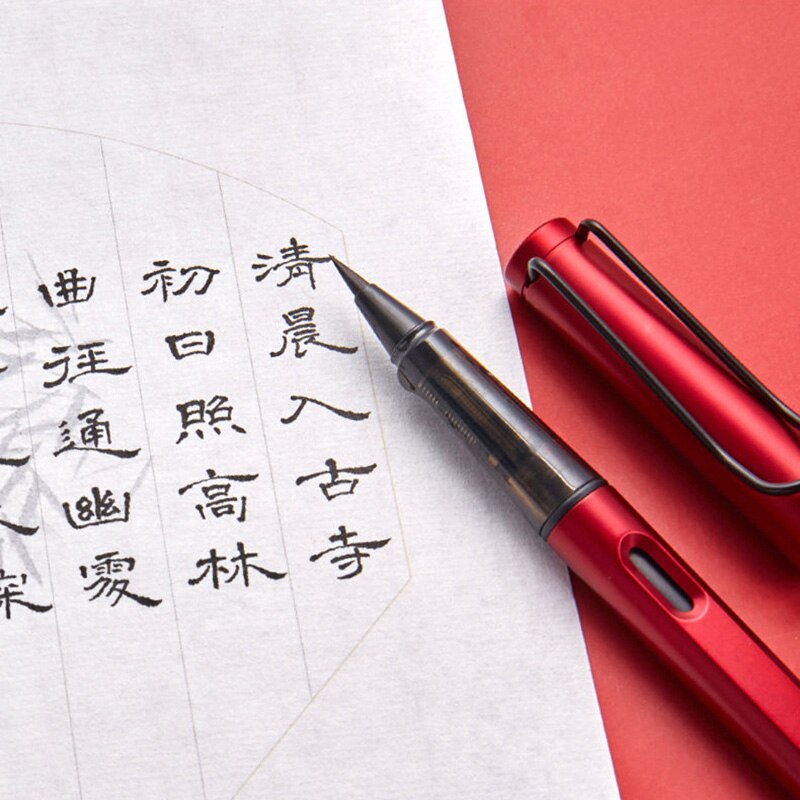 清晨入古寺
初日照高林
曲徑通幽處